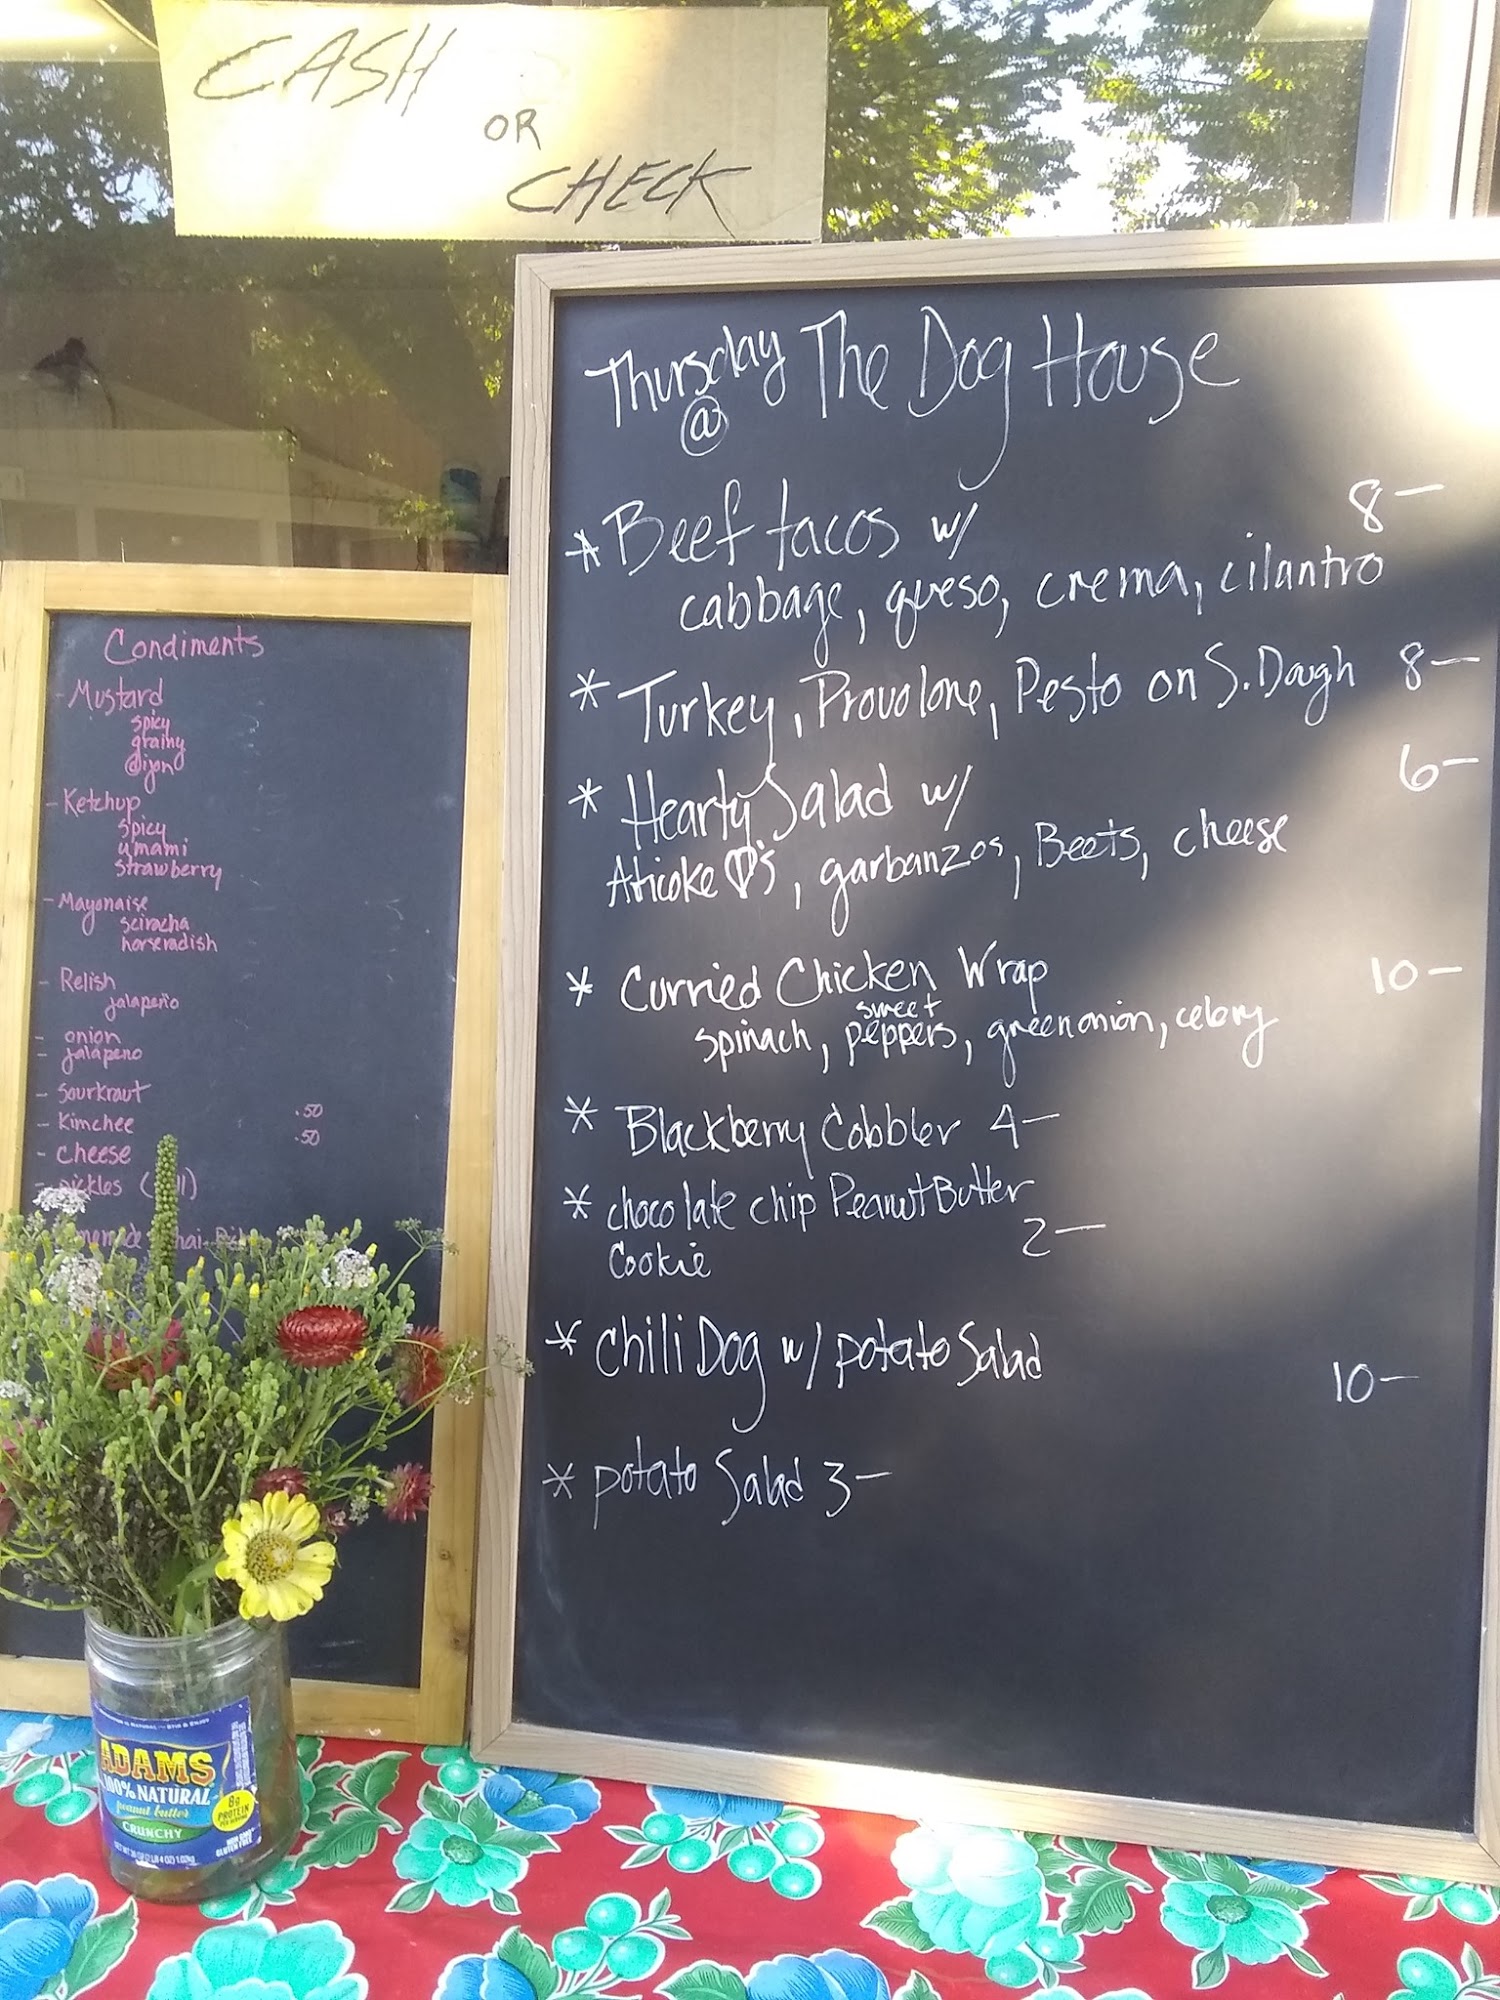 CASH
OR
CHECK
Thursday @ The Dog House
* Beef tacos w/ 8-
cabbage, queso, crema, cilantro
* Turkey, Provolone, Pesto on S. Dough 8-
* Hearty Salad w/ 6-
Aticoke ♡'s, garbanzos, Beets, cheese
* Curried Chicken Wrap 10-
spinach, sweet peppers, green onion, celery
* Blackberry Cobbler 4-
* chocolate chip Peanut Butter
Cookie 2-
* Chili Dog w/ potato Salad 10-
* potato Salad 3-
Condiments
- Mustard
spicy
grainy
dijon
- Ketchup
spicy
umami
strawberry
- Mayonaise
sciracha
horseradish
- Relish
jalapeño
- onion
- jalapeno
- sourkraut
- Kimchee .50
- cheese .50
- pickles
ADAMS
100% NATURAL
peanut butter
CRUNCHY
8g
PROTEIN